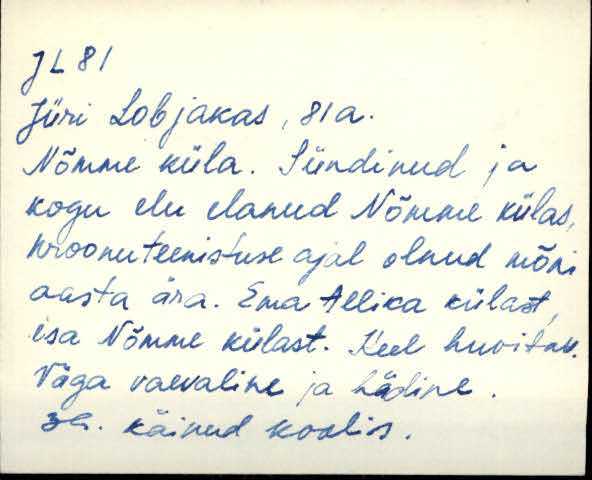 JL 81
Jüri Lobjakas, 81 a.
Nõmme küla. Sündinud ja
kogu elu elanud Nõmme külas,
kroonuteenistuse ajal olnud mõni
aasta ära. Ema Allika külast,
isa Nõmme külast. Keel huvitav.
Väga vaevaline ja hädine.
käinud koolis.